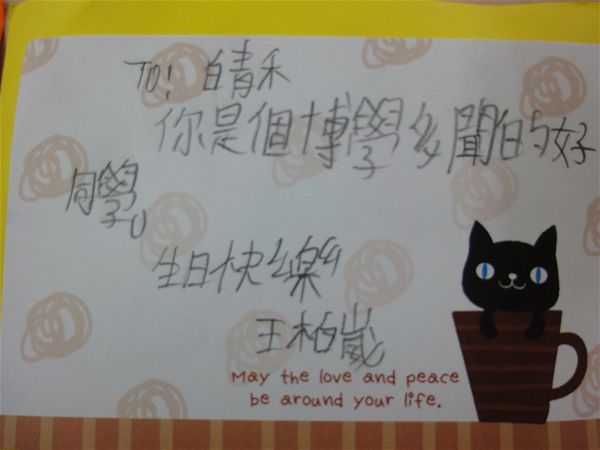 TO! 晴禾
你是個博學多聞的好
同學。
生日快樂
王柏崴
May the love and peace
be around your life.